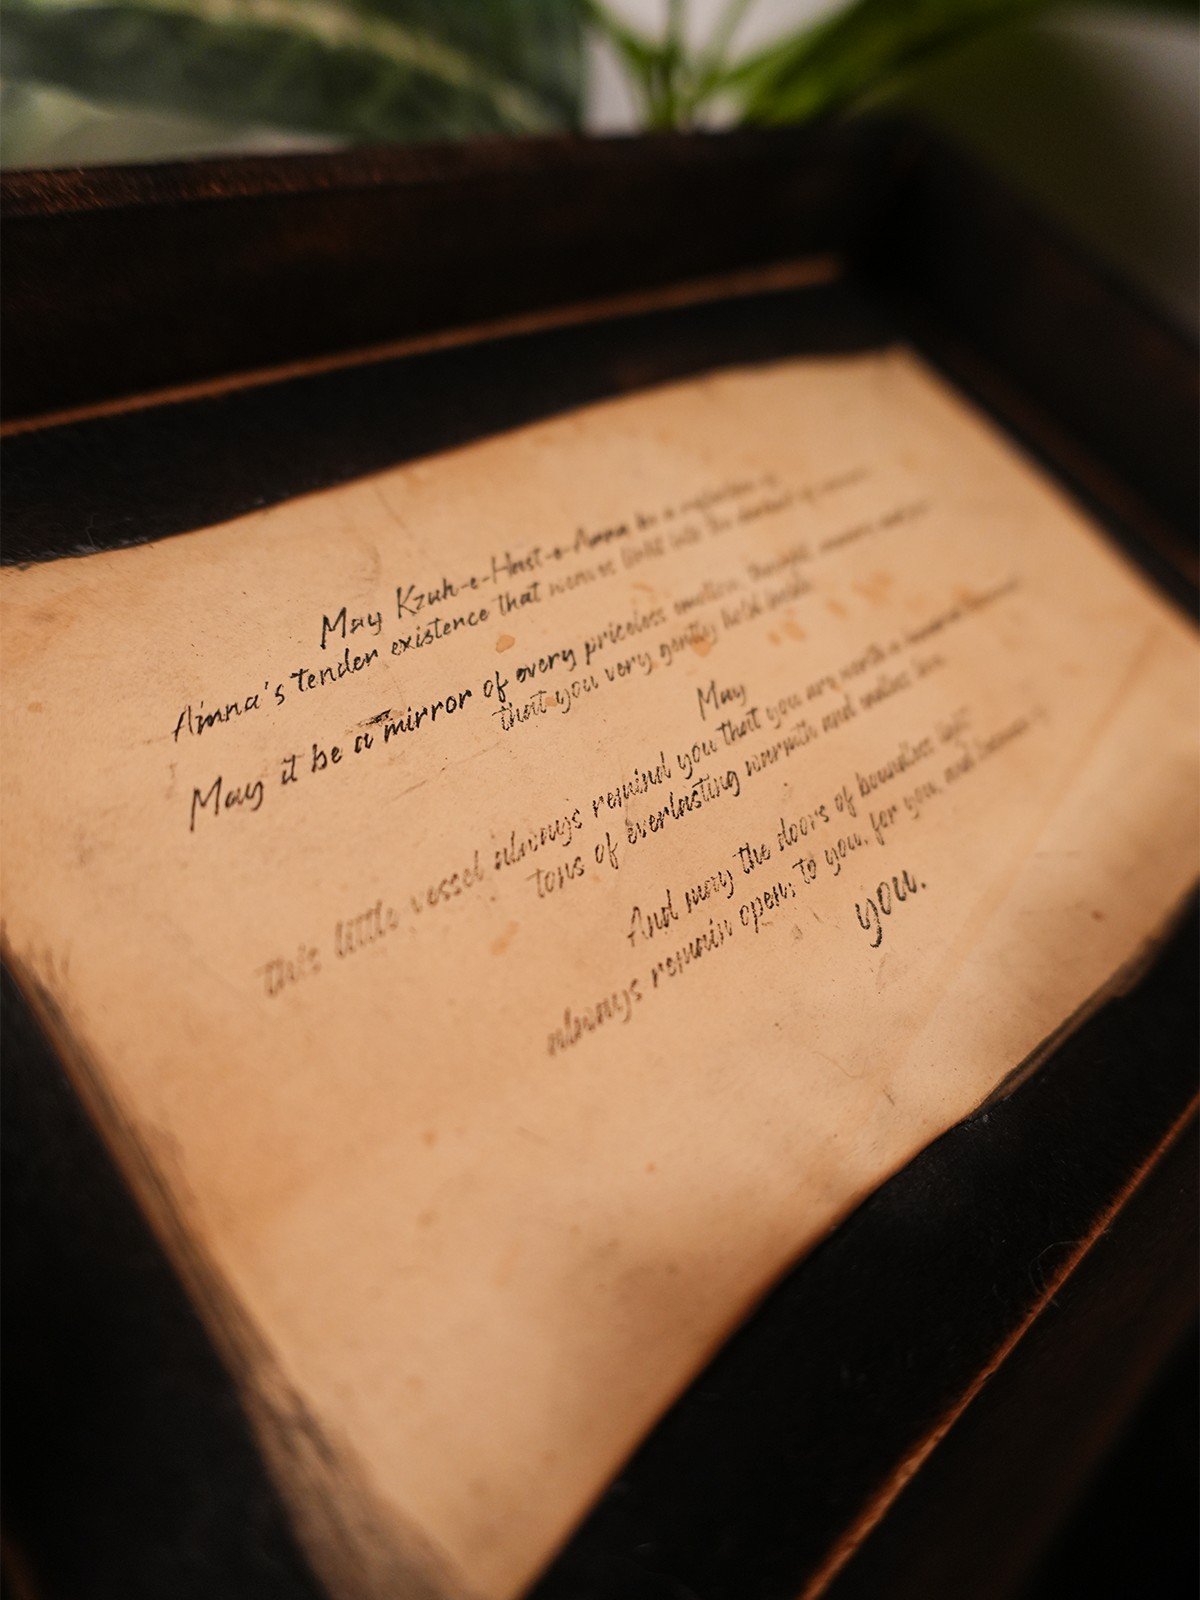 May Kzuh-e-Hast-e-Aimna be a reflection of
Aimna's tender existence that weaves links into the
May it be a mirror of every priceless emotion, thought,
that you very gently hold inside.
May
this little vessel always remind you that you are worth a
tons of everlasting warmth and endless love.
And may the doors of boundless light
always remain open; to you, for you, and because of
you.